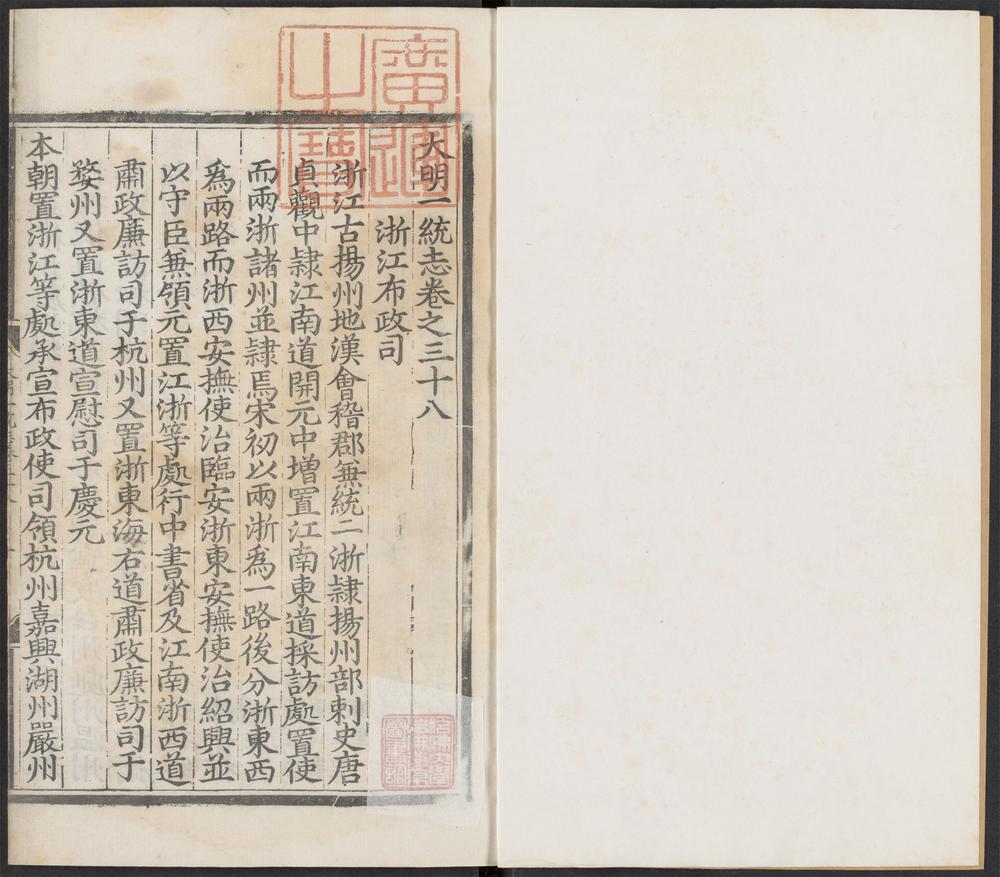 大明一統志卷之三十八
浙江布政司
浙江古揚州地漢會稽郡兼統二浙隷揚州部刺史唐
貞觀中隷江南道開元中增置江南東道採訪處置使
而兩浙諸州並隷焉宋初以兩浙爲一路後分浙東西
爲兩路而浙西安撫使治臨安浙東安撫使治紹興並
以守臣兼領元置江浙等處行中書省及江南浙西道
肅政廉訪司于杭州又置浙東海右道肅政廉訪司于
婺州又置浙東道宣慰司于慶元
本朝置浙江等處承宣布政使司領杭州嘉興湖州嚴州
廣運
之寶